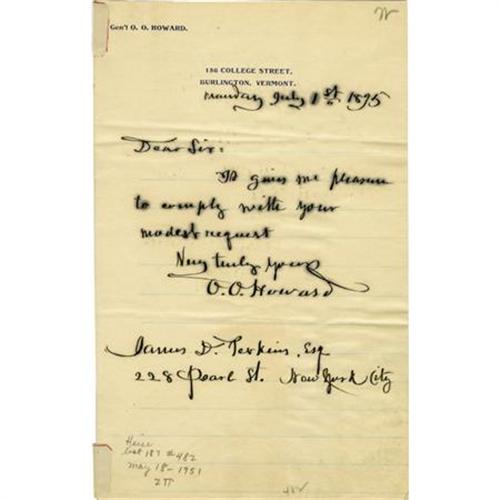 Gen'l O. O. HOWARD.
156 COLLEGE STREET,
BURLINGTON, VERMONT.
Monday July 1st 1895
Dear Sir:
It gives me pleasure
to comply with your
modest request
Very truly yours
O. O. Howard
James D. Perkins, Esq
228 Pearl St. New York City
Heise
Cat 187 # 482
May 18-1951